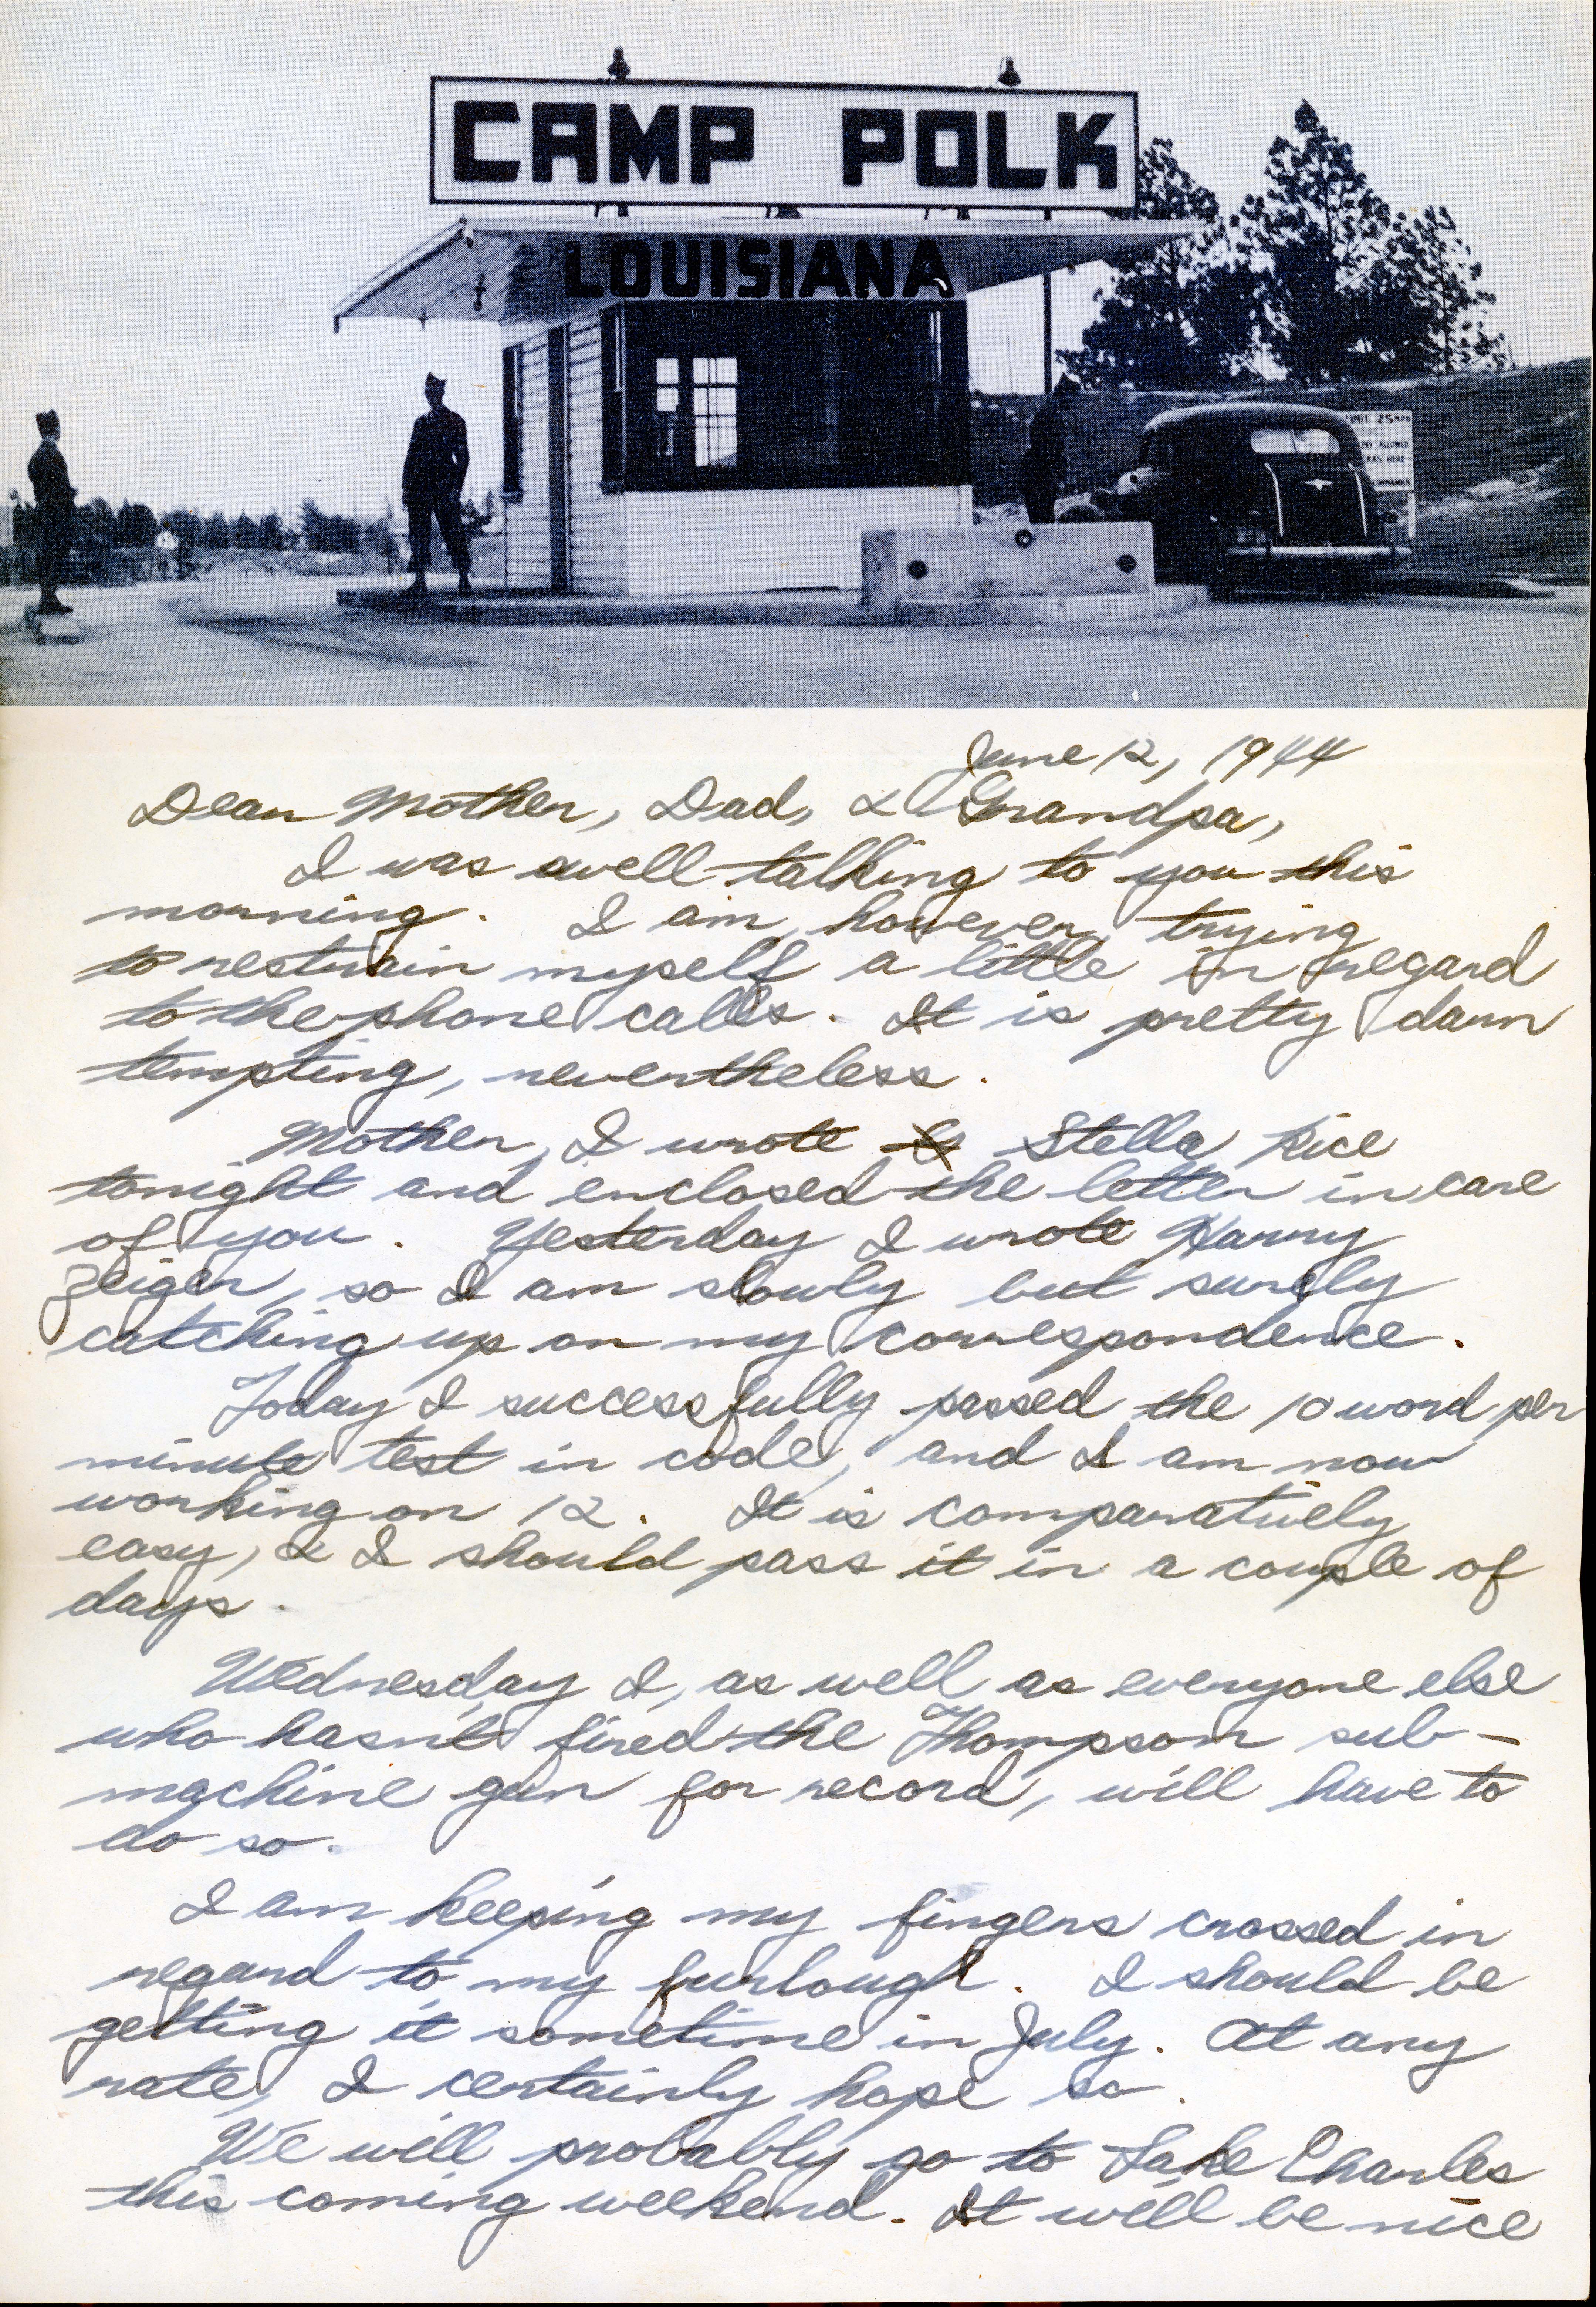 CAMP POLK
LOUISIANA
LIMIT 25 MPH
ALLOWED
HERE
June 12, 1944
Dear Mother, Dad, & Grandpa,
I was swell talking to you this
morning. I am, however, trying
to restrain myself a little in regard
to the phone calls. It is pretty darn
tempting, nevertheless.
Mother, I wrote Stella Rice
tonight and enclosed the letter in care
of you. Yesterday I wrote Harry
Zeiger, so I am slowly but surely
catching up on my correspondence.
Today I successfully passed the 10 word per
minute test in code, and I am now
working on 12. It is comparatively
easy, & I should pass it in a couple of
days.
Wednesday I, as well as everyone else
who hasn't fired the Thompson sub-
machine gun for record, will have to
do so.
I am keeping my fingers crossed in
regard to my furlough. I should be
getting it sometime in July. At any
rate, I certainly hope so.
We will probably go to Lake Charles
this coming weekend. It will be nice